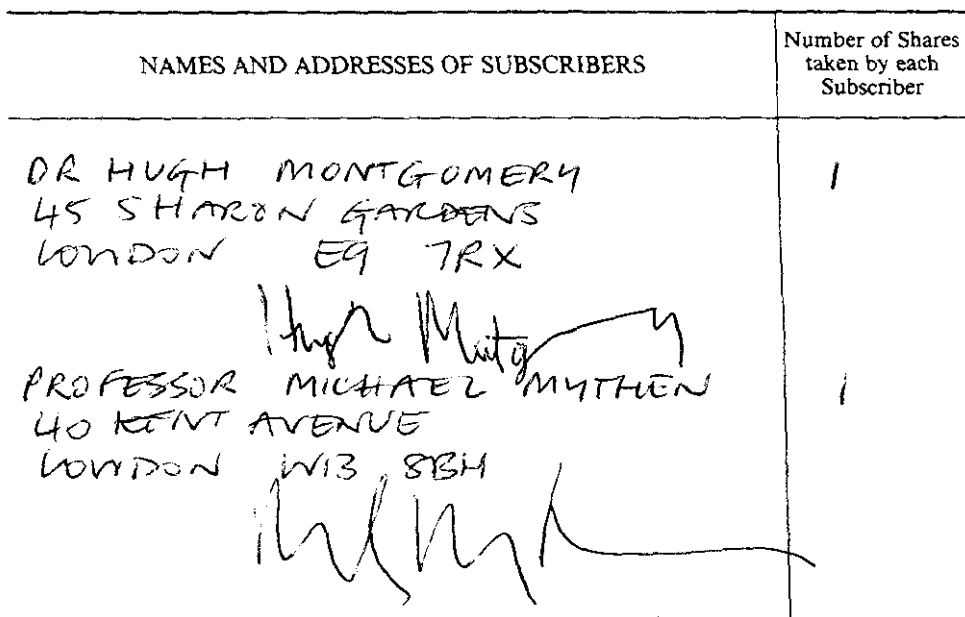 NAMES AND ADDRESSES OF SUBSCRIBERS
Number of Shares
taken by each
Subscriber
DR HUGH MONTGOMERY 1
45 SHARON GARDENS
LONDON E9 7RX
Hugh Montgomery
PROFESSOR MICHAEL MYTHEN 1
40 KENT AVENUE
LONDON W13 8BH